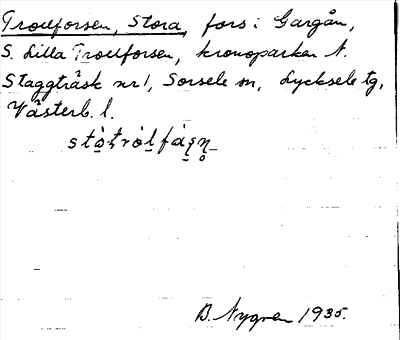 Trollforsen, Stora, fors i Gargån,
S. Lilla Trollforsen, kronoparken N.
Staggträsk nr 1, Sorsele sn, Lycksele tg,
Västerb. l.
stò̱ṭròḻfáṣṇ̥
B. Nygren 1935.